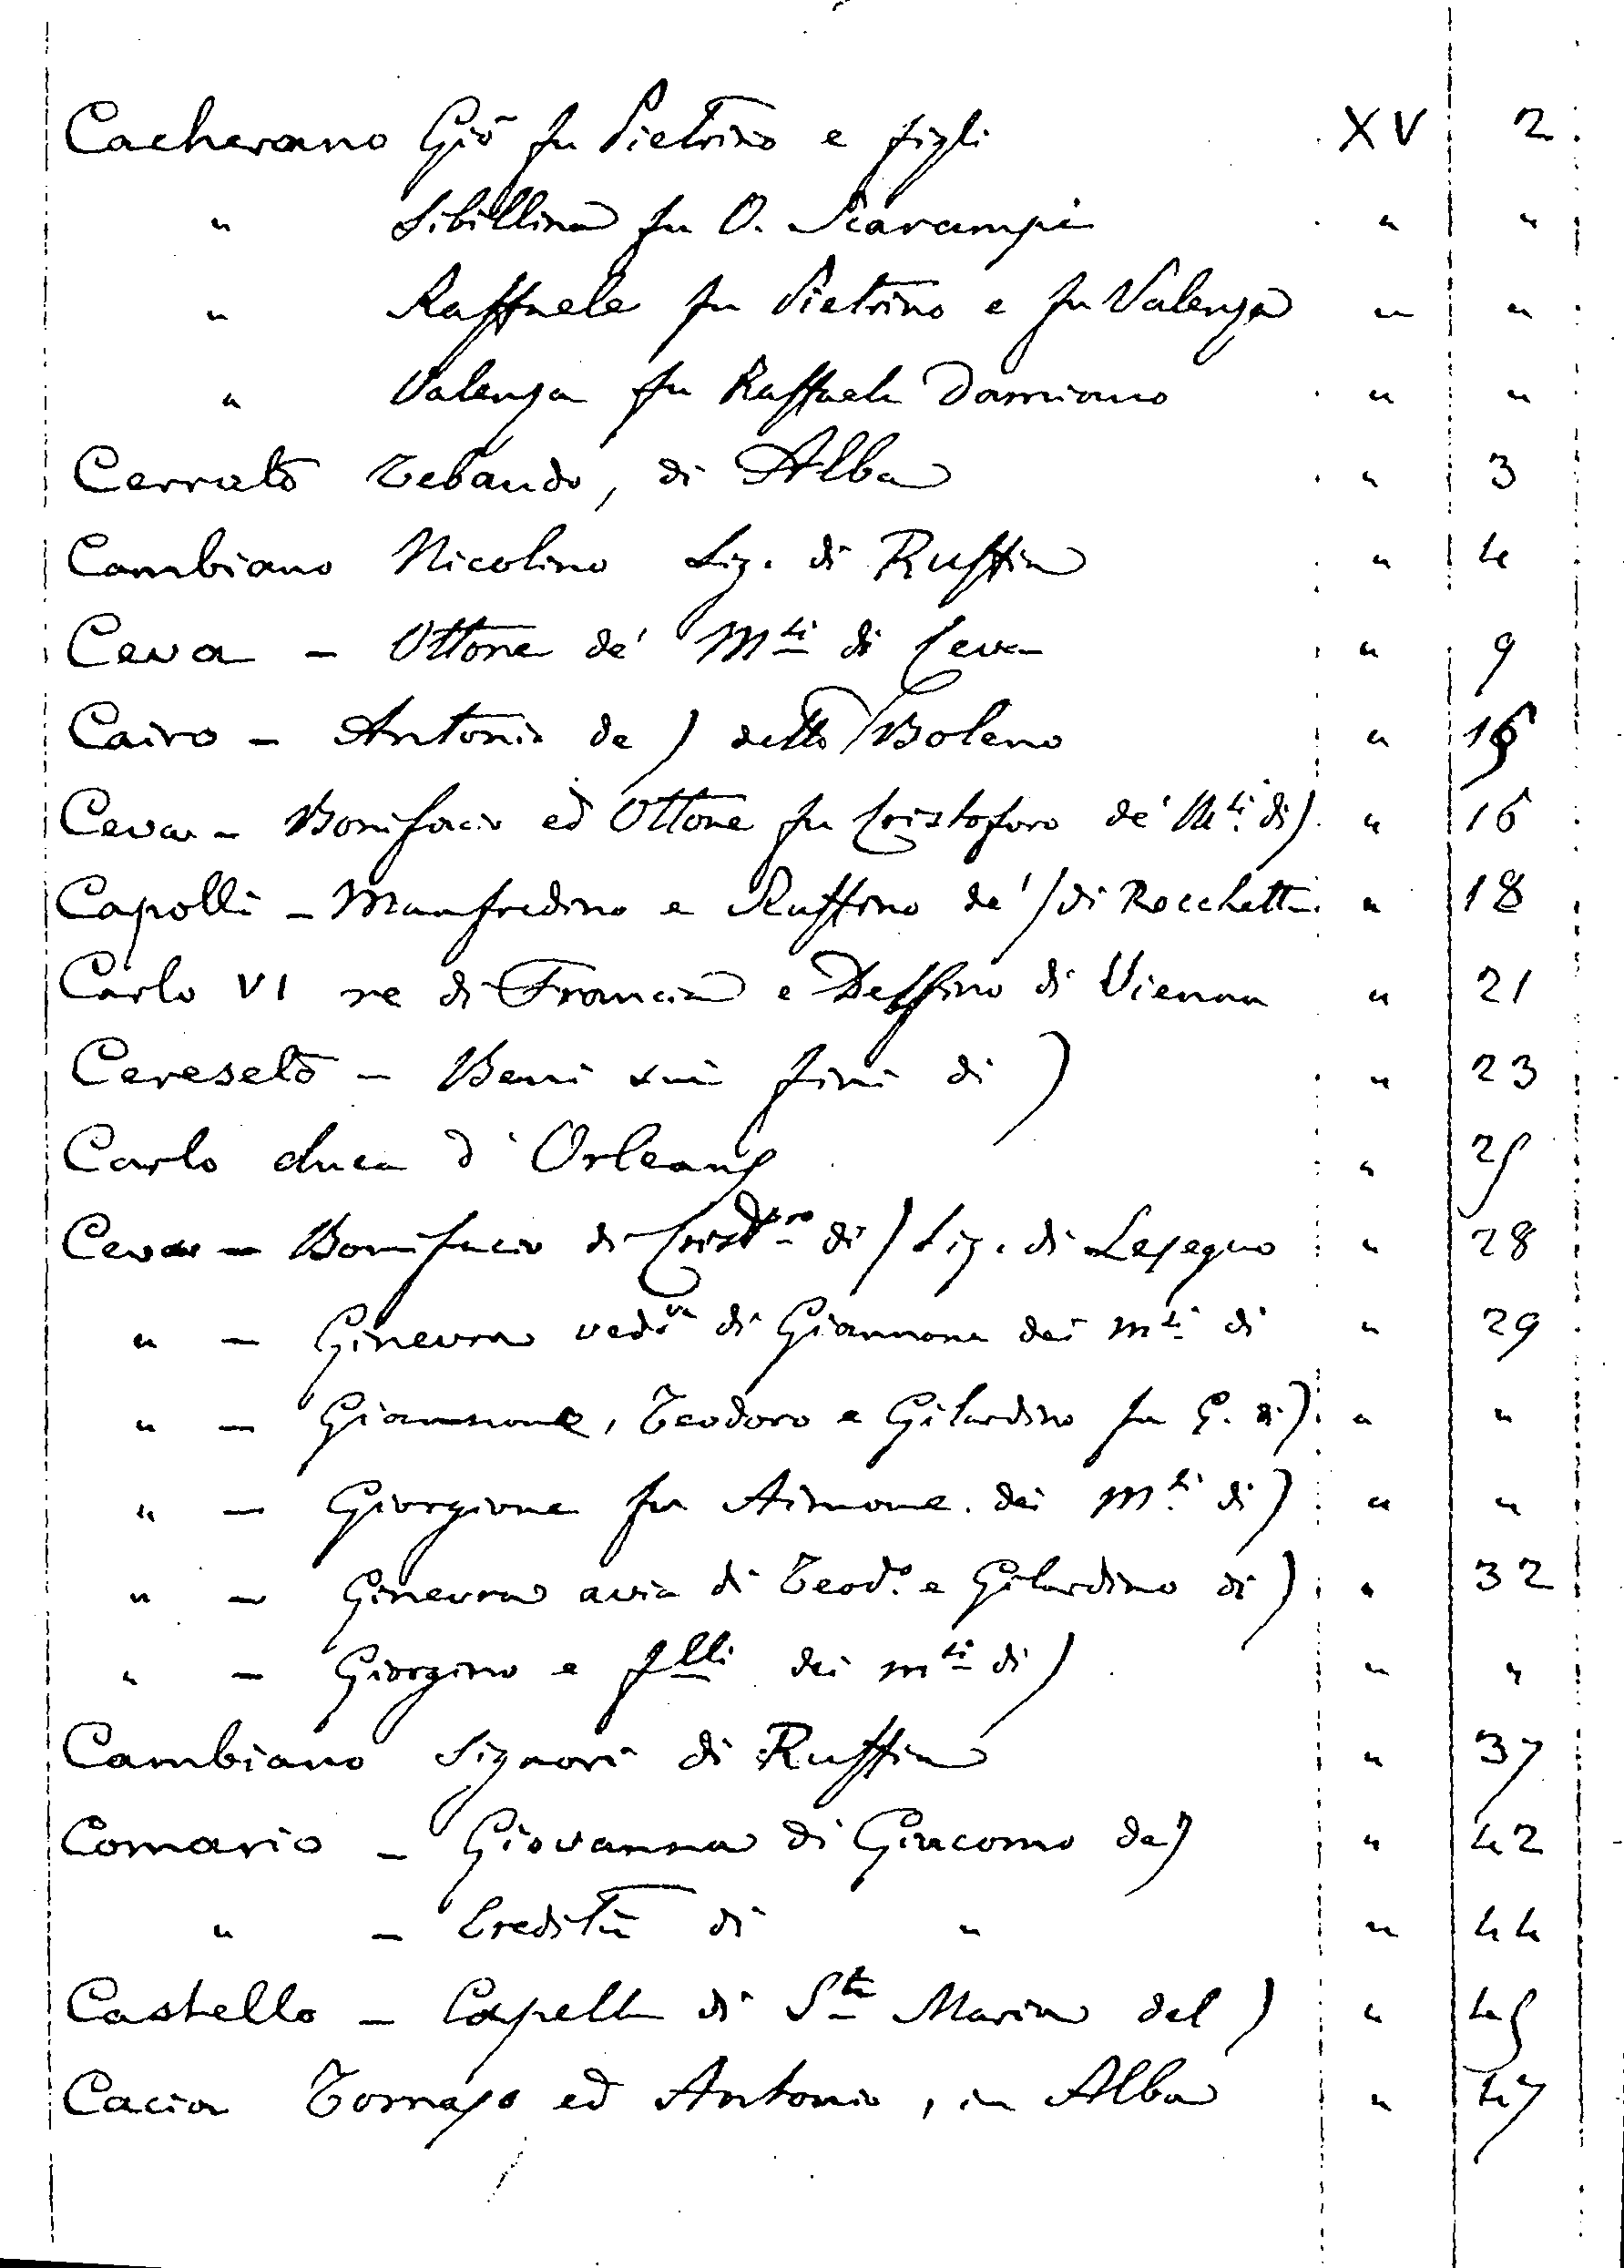 Cacherano Giõ fu Pietrino e figli XV 2
" Sibillina fu O. Scarampi " "
" Raffaele fu Pietrino e fu Valenza " "
" Valenza fu Raffaele Damiano " "
Cerrato Tebaudo, di Alba " 3
Cambiano Nicolino Sig. di Ruffia " 4
Ceva - Ottone de' Mti di Ceva " 9
Cairo - Antonio de) detto Boleno "
Ceva - Bonifacio ed Ottone fu Cristoforo de' Mti di) " 16
Capolli - Manfredino e Ruffino de') di Rocchetta " 18
Carlo VI re di Francia e Delfino di Vienna " 21
Cereseto - Beni sui fini di) " 23
Carlo duca d'Orleans " 25
Ceva - Bonifacio di Cristro di) Sig. di Lesegno " 28
" - Ginevra vedva di Giannone dei mti di " 29
" - Giannone, Teodoro e Gilardino fu G. di) " "
" - Giorgione fu Aimone dei mti di) " "
" - Ginevra avia di Teodo e Gilardino di) " 32
" - Giorgino e flli dei mti di) " "
Cambiano Signori di Ruffia " 37
Comario - Giovanna di Giacomo de) " 42
" - Eredità di " " 44
Castello - Capella di Sta Maria del) " 45
Cacia Tomaso ed Antonio, in Alba " 47